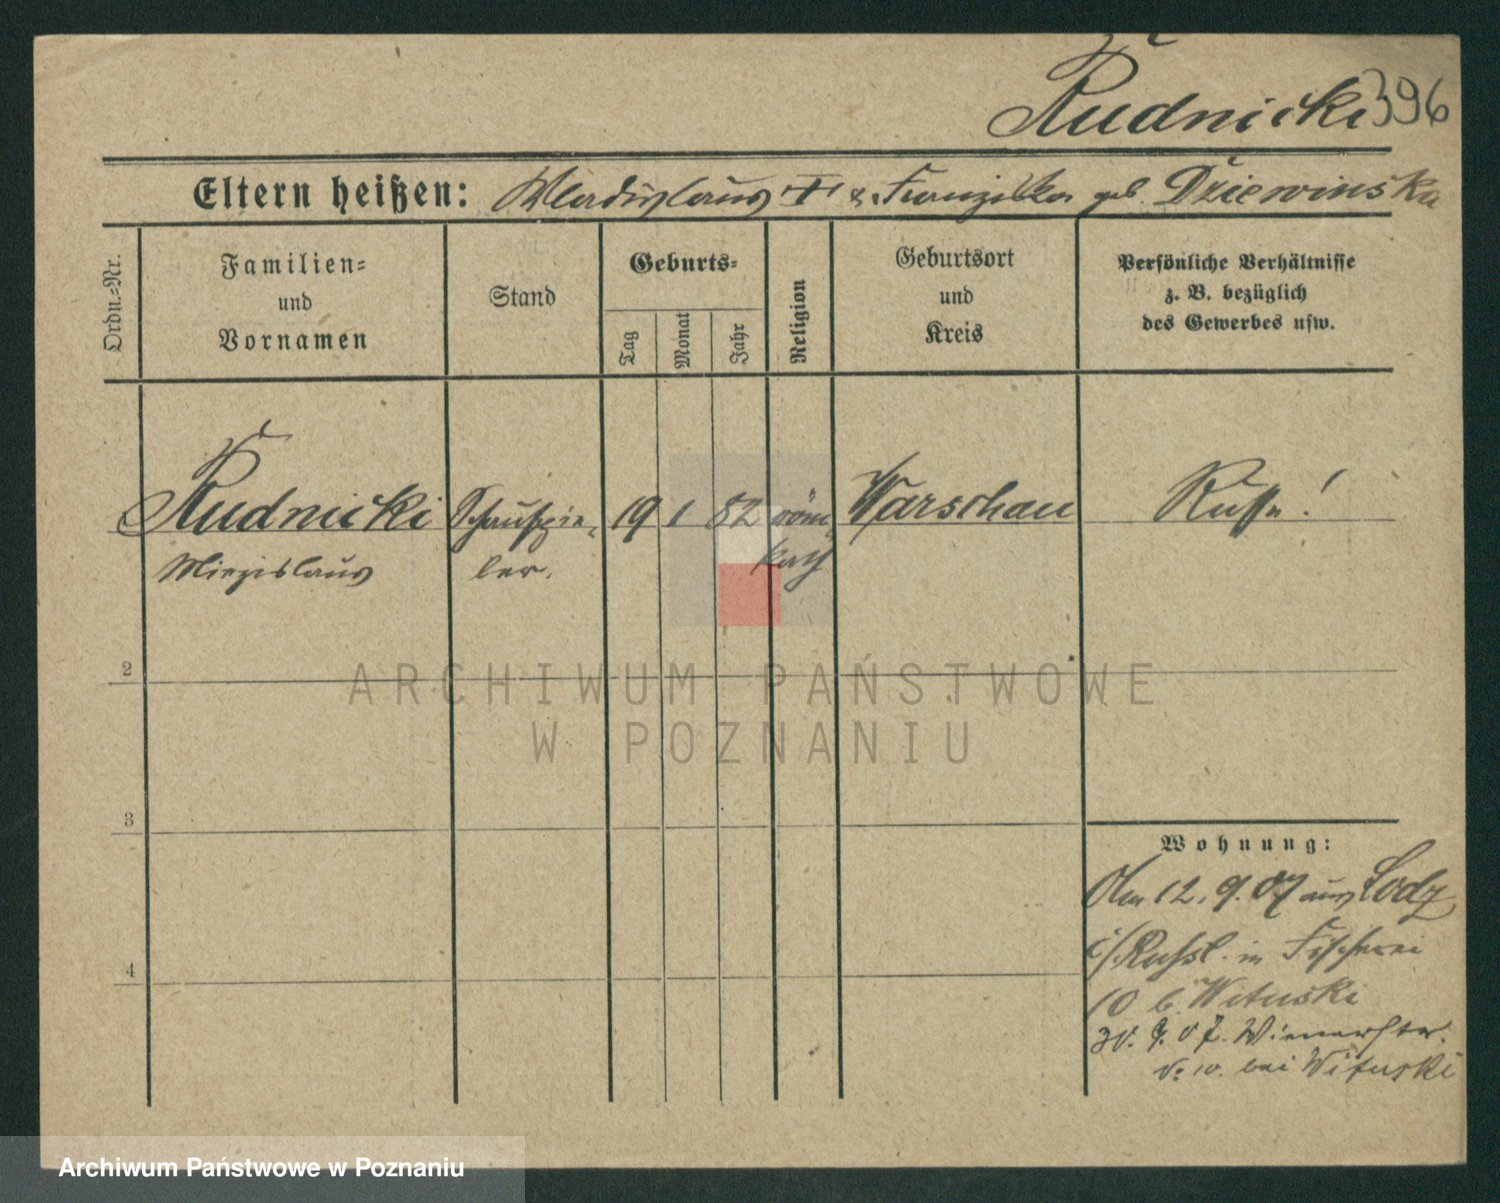 Rudnicki 396
Eltern heißen: Wladislaus † & Franziska geb. Dziewinska
Ordn.-Nr.
Familien-
und
Vornamen
Stand
Geburts-
Tag
Monat
Jahr
Religion
Geburtsort
und
Kreis
Persönliche Verhältnisse
z. B. bezüglich
des Gewerbes usw.
Rudnicki Schauspie- 19 1 82 röm. Warschau Russe!
Miezislaus ler. kath
2
3
4
Wohnung:
Am 12. 9. 07 aus Lodz
i/Russl. in Fischerei
10 b. Wituski
30. 9. 07. Wienerstr.
No 10. bei Wituski
ARCHIWUM PAŃSTWOWE
W POZNANIU
Archiwum Państwowe w Poznaniu